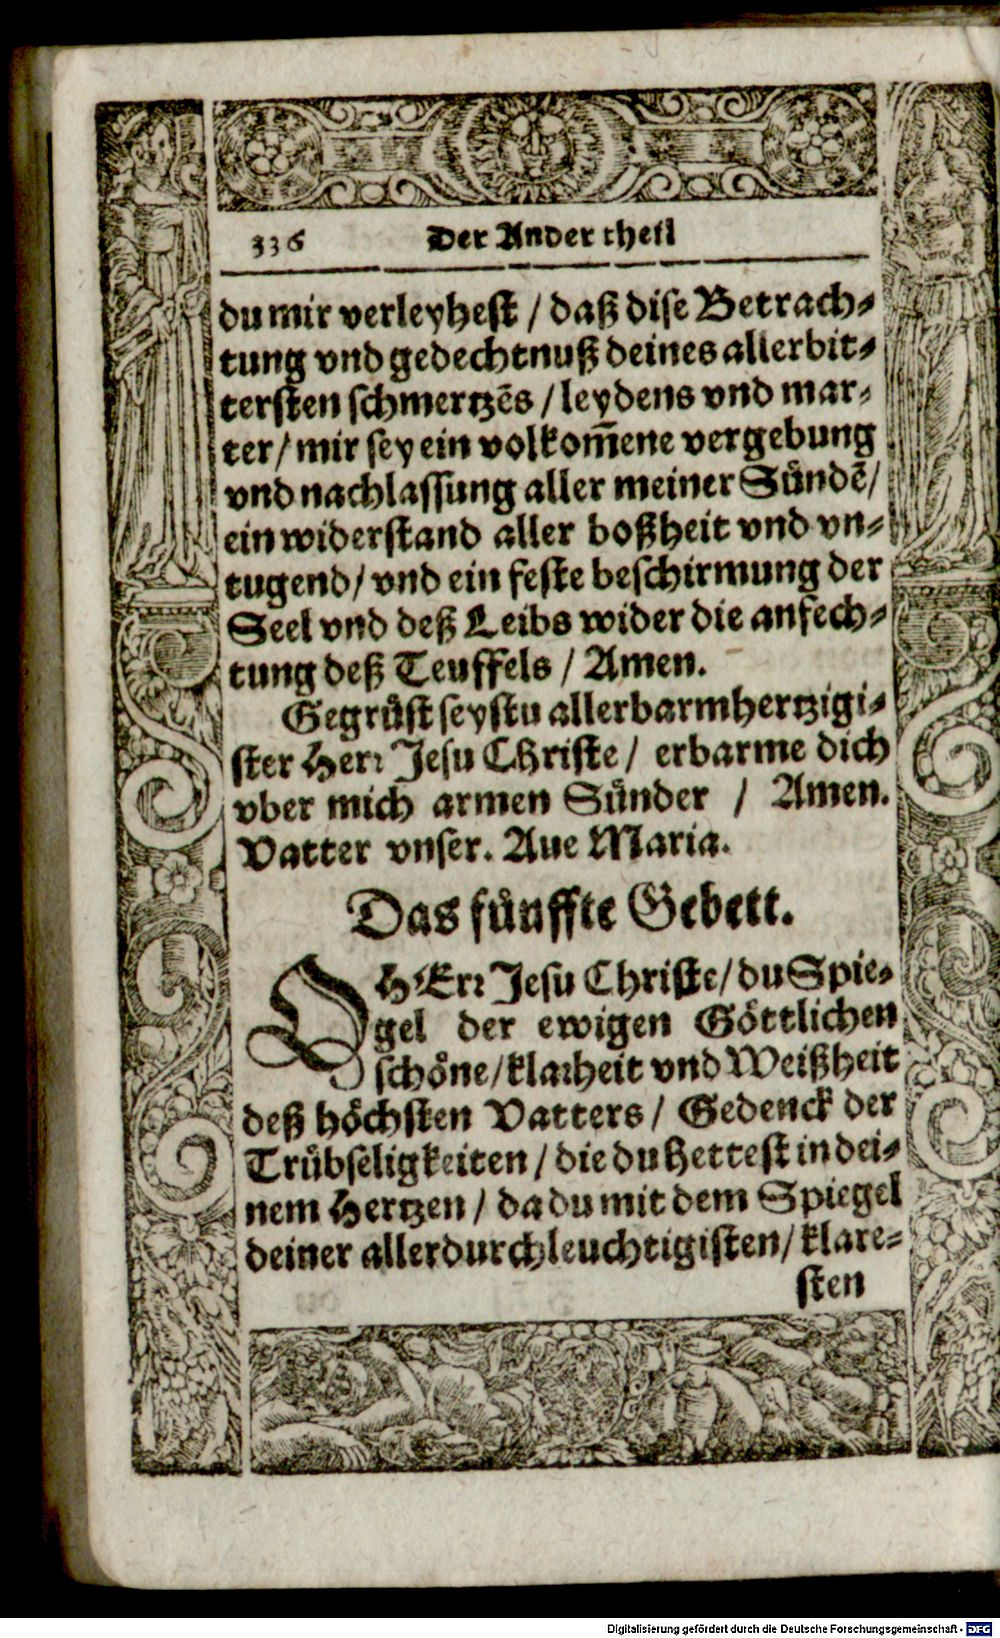 336 Der Ander theil
du mir verleyhest / daß dise Betrach-
tung vnd gedechtnuß deines allerbit-
tersten schmertzēs / leydens vnd mar-
ter / mir sey ein volkom̄ene vergebung
vnd nachlassung aller meiner Sündē /
ein widerstand aller boßheit vnd vn-
tugend / vnd ein feste beschirmung der
Seel vnd deß Leibs wider die anfech-
tung deß Teuffels / Amen.
Gegrüst seystu allerbarmhertzigi-
ster Herr Jesu Christe / erbarme dich
vber mich armen Sünder / Amen.
Vatter vnser. Aue Maria.
Das fünffte Gebett.
O HErr Jesu Christe / du Spie-
gel der ewigen Göttlichen
schöne / klarheit vnd Weißheit
deß höchsten Vatters / Gedenck der
Trübseligkeiten / die du hettest in dei-
nem Hertzen / da du mit dem Spiegel
deiner allerdurchleuchtigisten / klare-
sten
Digitalisierung gefördert durch die Deutsche Forschungsgemeinschaft - DFG